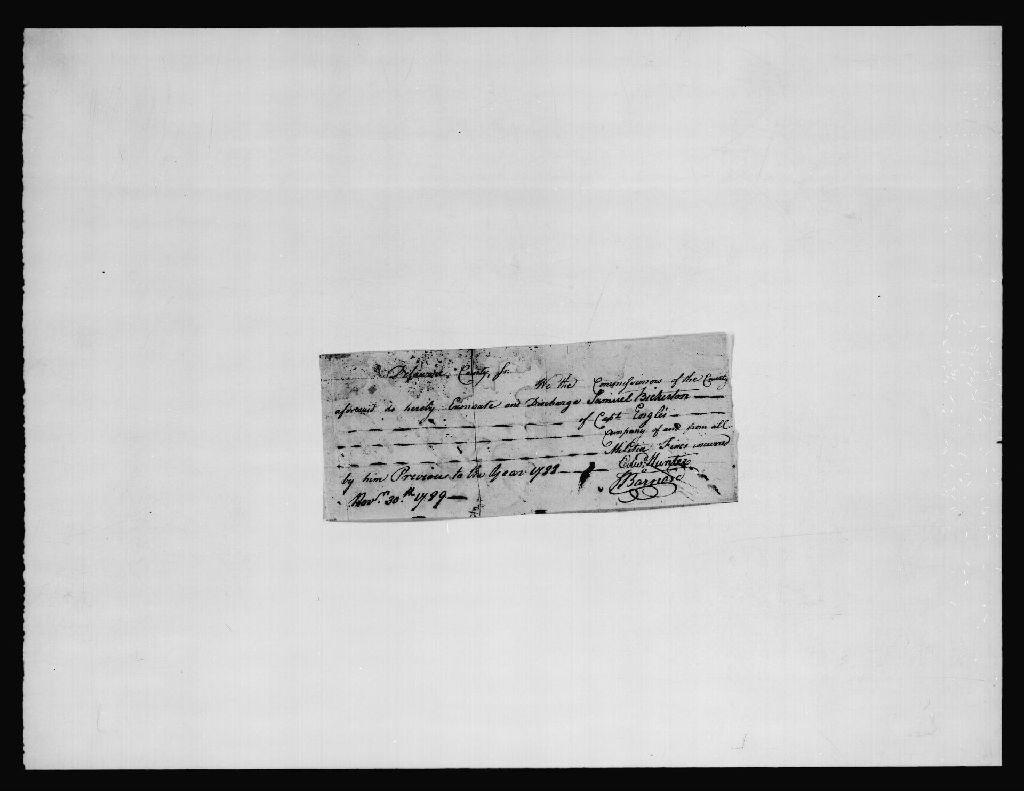 Delaware County, Ss.
We the Commissioners of the County
aforesaid do hereby Exonerate and Discharge Samuel Bickerton
of Capt. Engles
Company of and from all
Militia Fines incurred
by him Previous to the Year 1788
Edwd. Hunter
J Barnard
Novr. 30th 1789